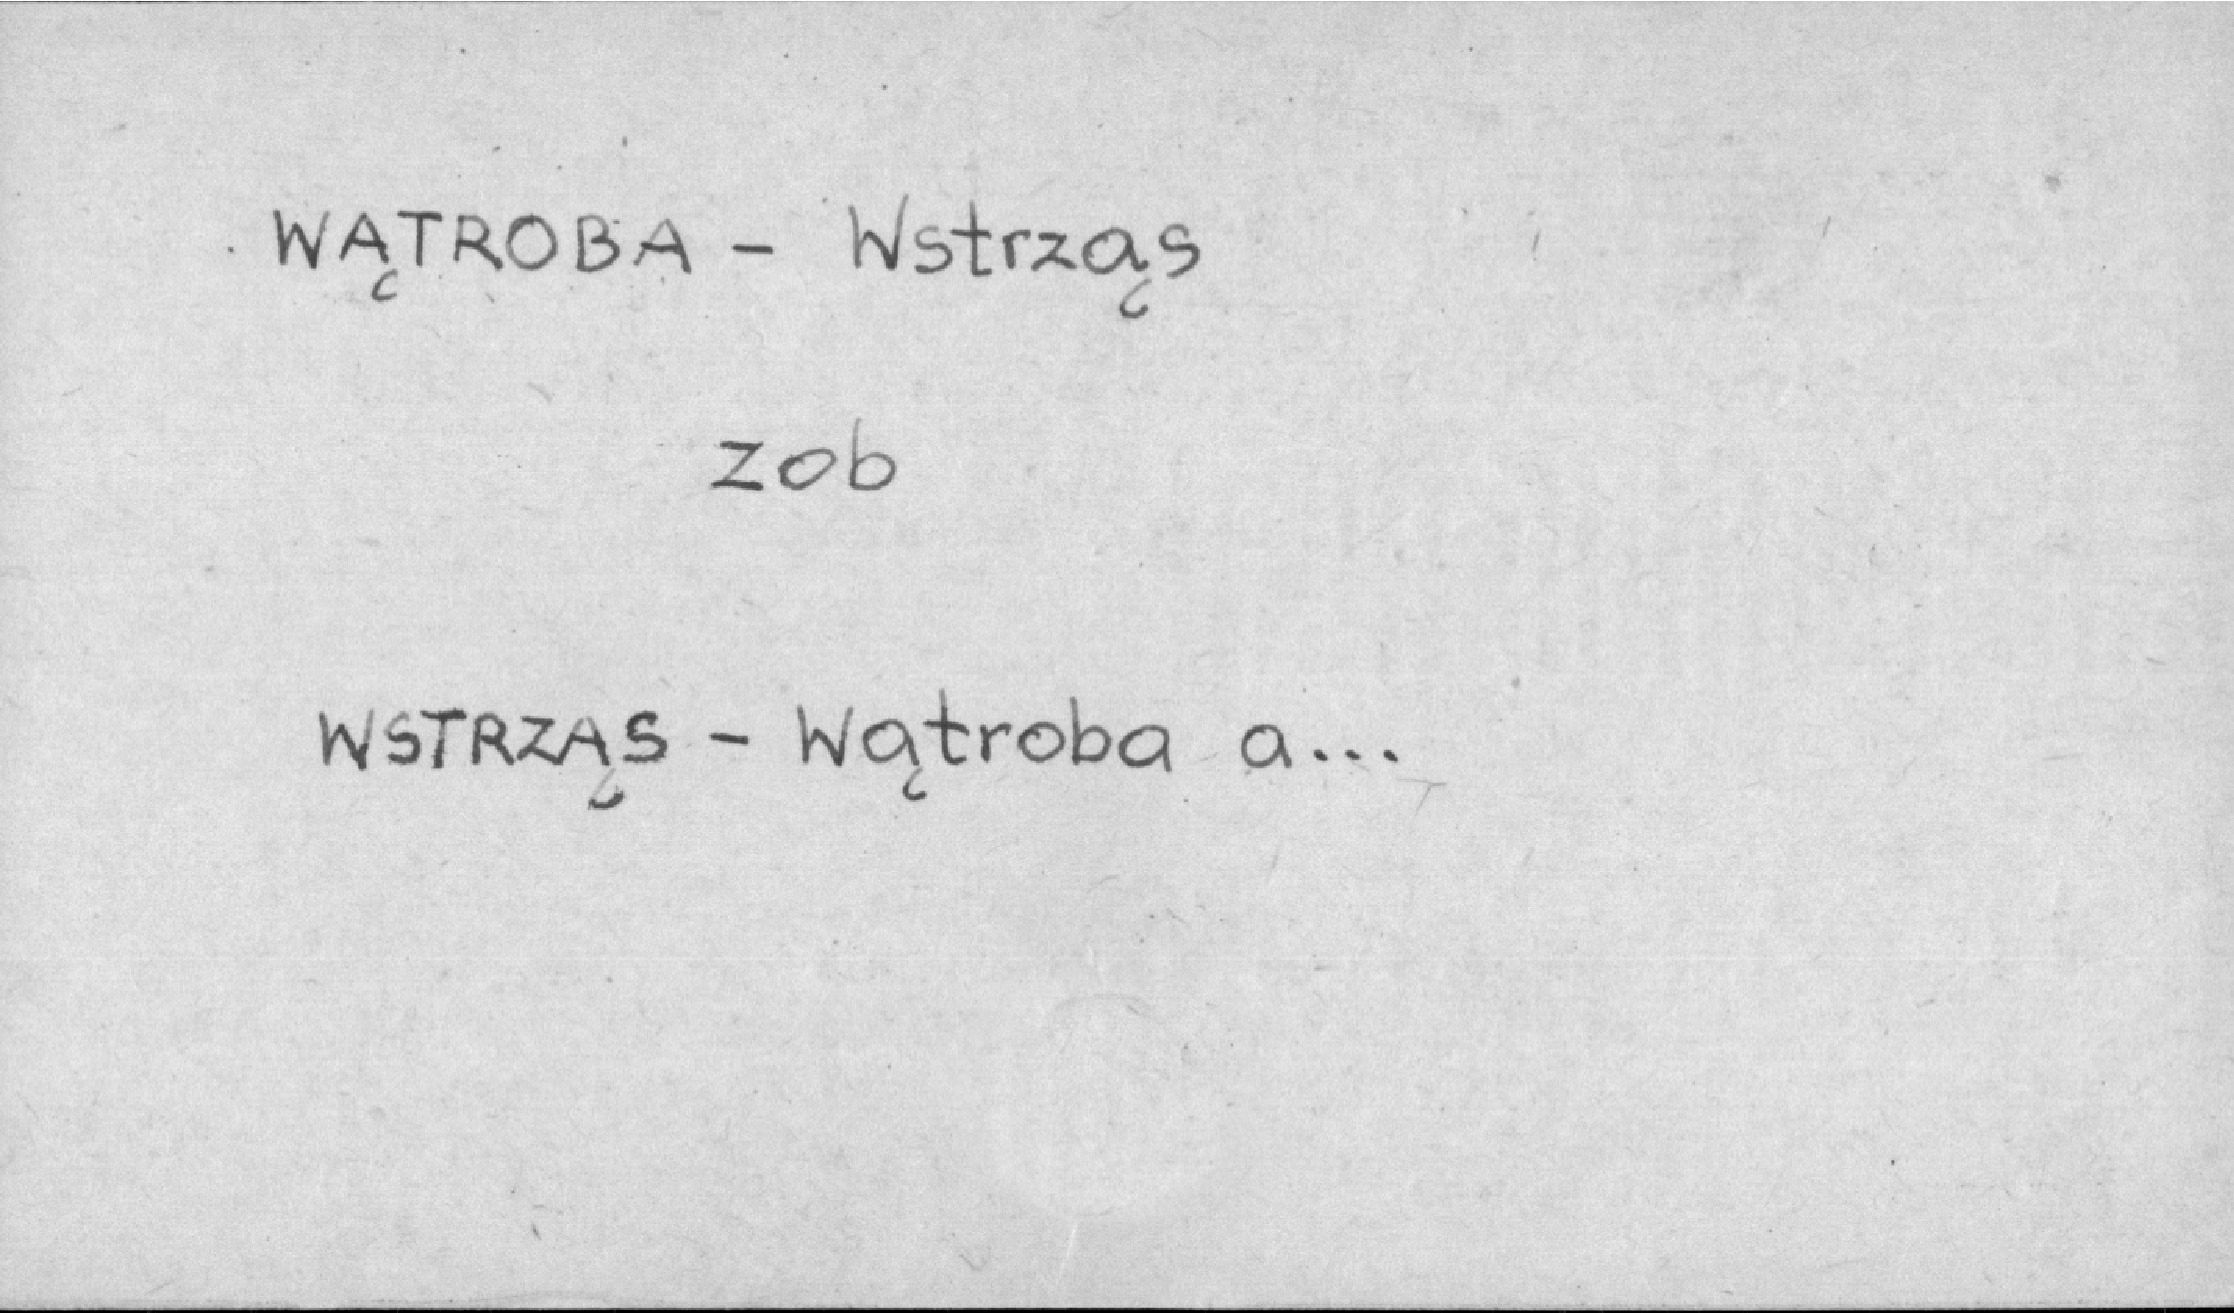 WĄTROBA - Wstrząs
zob
WSTRZĄS - Wątroba a...